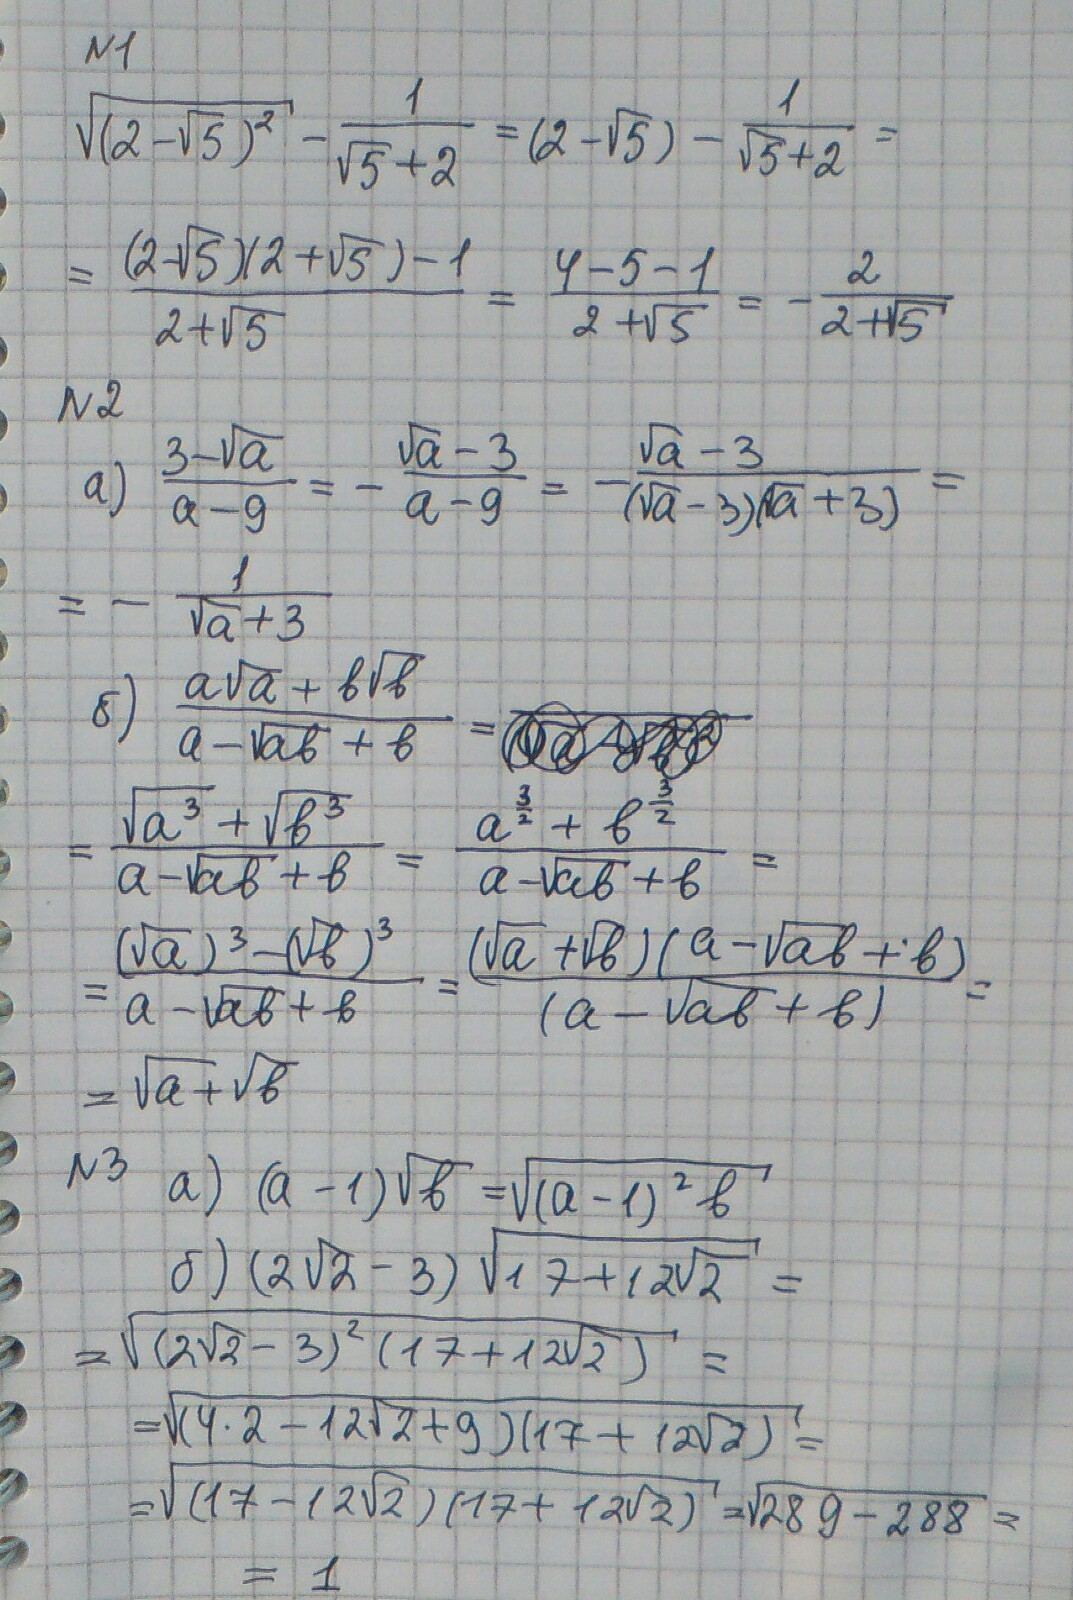 N1
√((2-√5)²) - 1/(√5+2) = (2-√5) - 1/(√5+2) =
= ((2-√5)(2+√5)-1)/(2+√5) = (4-5-1)/(2+√5) = - 2/(2+√5)
N2
а) (3-√a)/(a-9) = - (√a-3)/(a-9) = - (√a-3)/((√a-3)(√a+3)) =
= - 1/(√a+3)
б) (a√a + b√b)/(a-√ab+b) =
= (√a³ + √b³)/(a-√ab+b) = (a^(3/2) + b^(3/2))/(a-√ab+b) =
= ((√a)³-(√b)³)/(a-√ab+b) = ((√a+√b)(a-√ab+b))/((a-√ab+b)) =
= √a+√b
N3 а) (a-1)√b = √((a-1)²b)
б) (2√2-3)√(17+12√2) =
= √((2√2-3)²(17+12√2)) =
= √((4·2-12√2+9)(17+12√2)) =
= √((17-12√2)(17+12√2)) = √(289-288) =
= 1